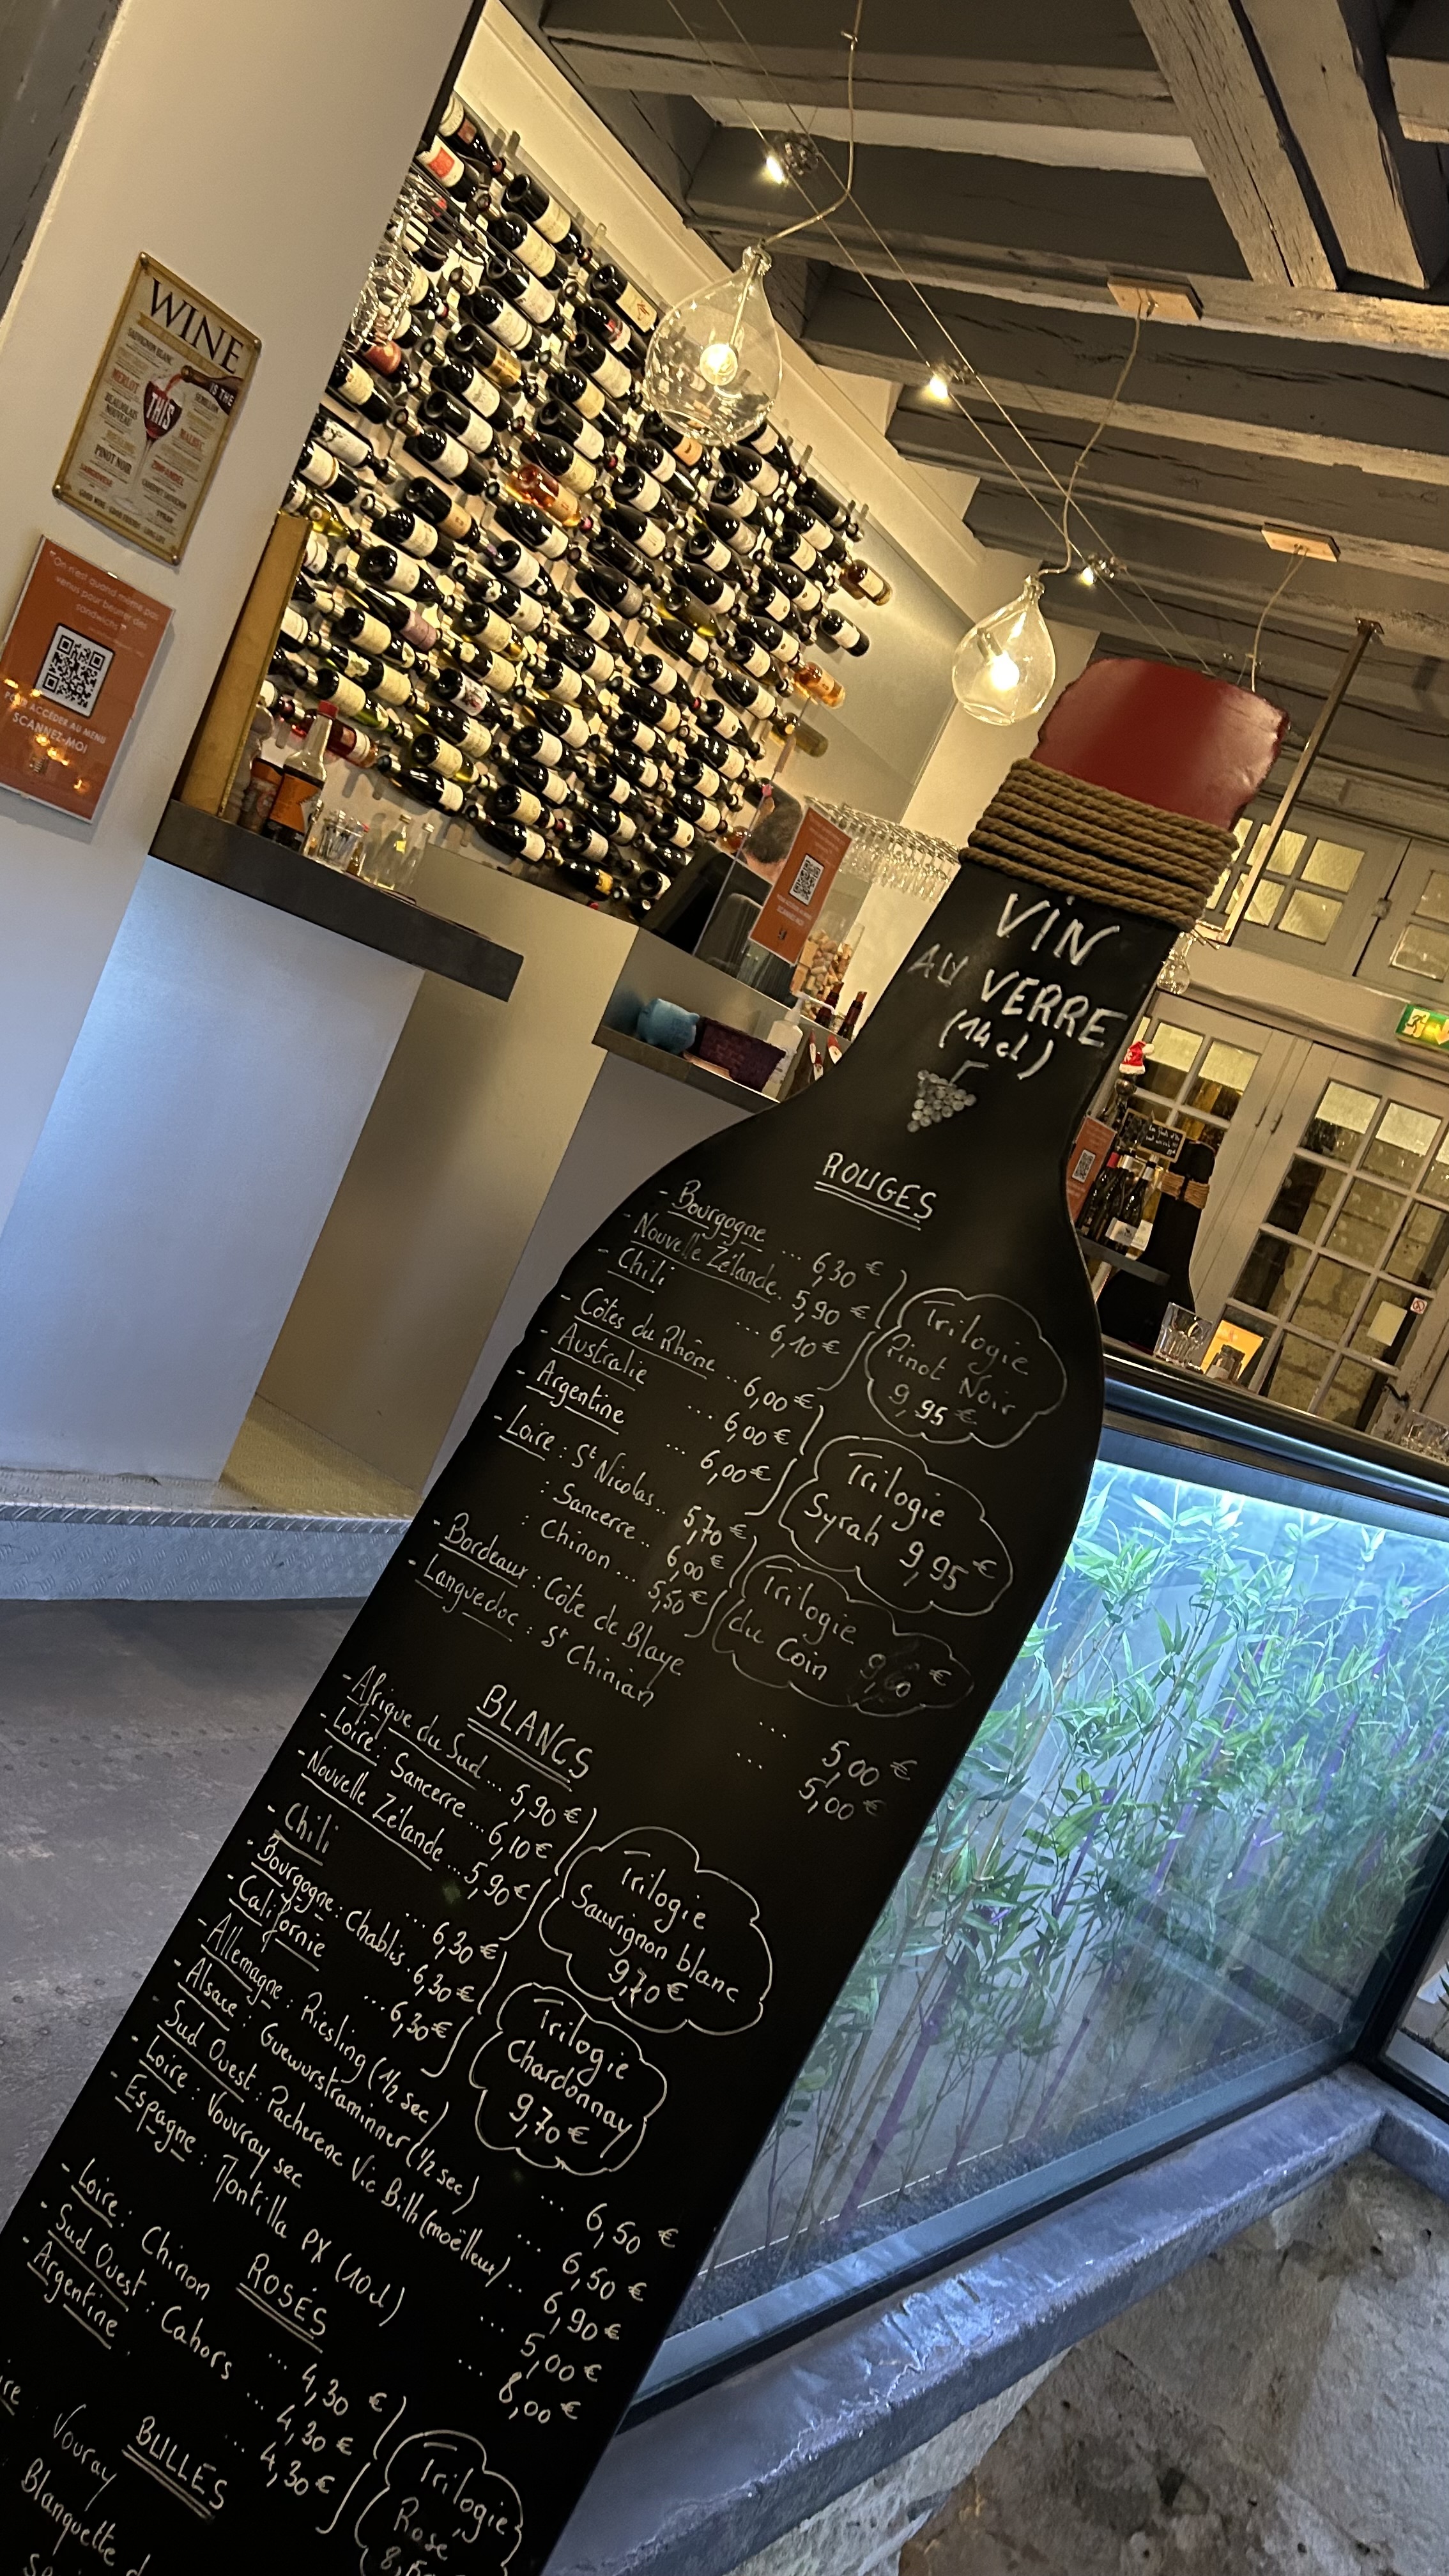 WINE
SAUVIGNON BLANC
MERLOT
IS THE
BEAUJOLAIS
NOUVEAU
THIS
MALBEC
RIESLING
PINOT NOIR
ZINFANDEL
CABERNET SAUVIGNON
SYRAH
"On n'est quand même pas
venus pour beurrer des
sandwichs"
POUR ACCÉDER AU MENU
SCANNEZ-MOI
VIN
AU VERRE
(14cl)
ROUGES
- Bourgogne ... 6,30 €
- Nouvelle Zélande. 5,90 €
- Chili ... 6,10 €
Trilogie
Pinot Noir
9,95 €
- Côtes du Rhône .. 6,00 €
- Australie ... 6,00 €
- Argentine ... 6,00 €
Trilogie
Syrah 9,95 €
- Loire : St Nicolas.. 5,70 €
: Sancerre .. 6,00 €
: Chinon ... 5,50 €
Trilogie
du Coin 9,60 €
- Bordeaux : Côte de Blaye ... 5,00 €
- Languedoc : St Chinian ... 5,00 €
BLANCS
- Afrique du Sud ... 5,90 €
- Loire : Sancerre ... 6,10 €
- Nouvelle Zélande ... 5,90 €
Trilogie
Sauvignon blanc
9,70 €
- Chili ... 6,30 €
- Bourgogne : Chablis . 6,30 €
- Californie ... 6,30 €
Trilogie
Chardonnay
9,70 €
- Allemagne : Riesling (1/2 sec) ... 6,50 €
- Alsace : Guewurstraminner (1/2 sec) ... 6,50 €
- Sud Ouest : Pacherenc Vic Bilh (moëlleux) .. 6,90 €
- Loire : Vouvray sec ... 5,00 €
- Espagne : Montilla PX (10cl) ... 8,00 €
ROSÉS
- Loire : Chinon ... 4,30 €
- Sud Ouest : Cahors ... 4,30 €
- Argentine ... 4,30 €
Trilogie
Rosé
BULLES
Vouvray
Blanquette